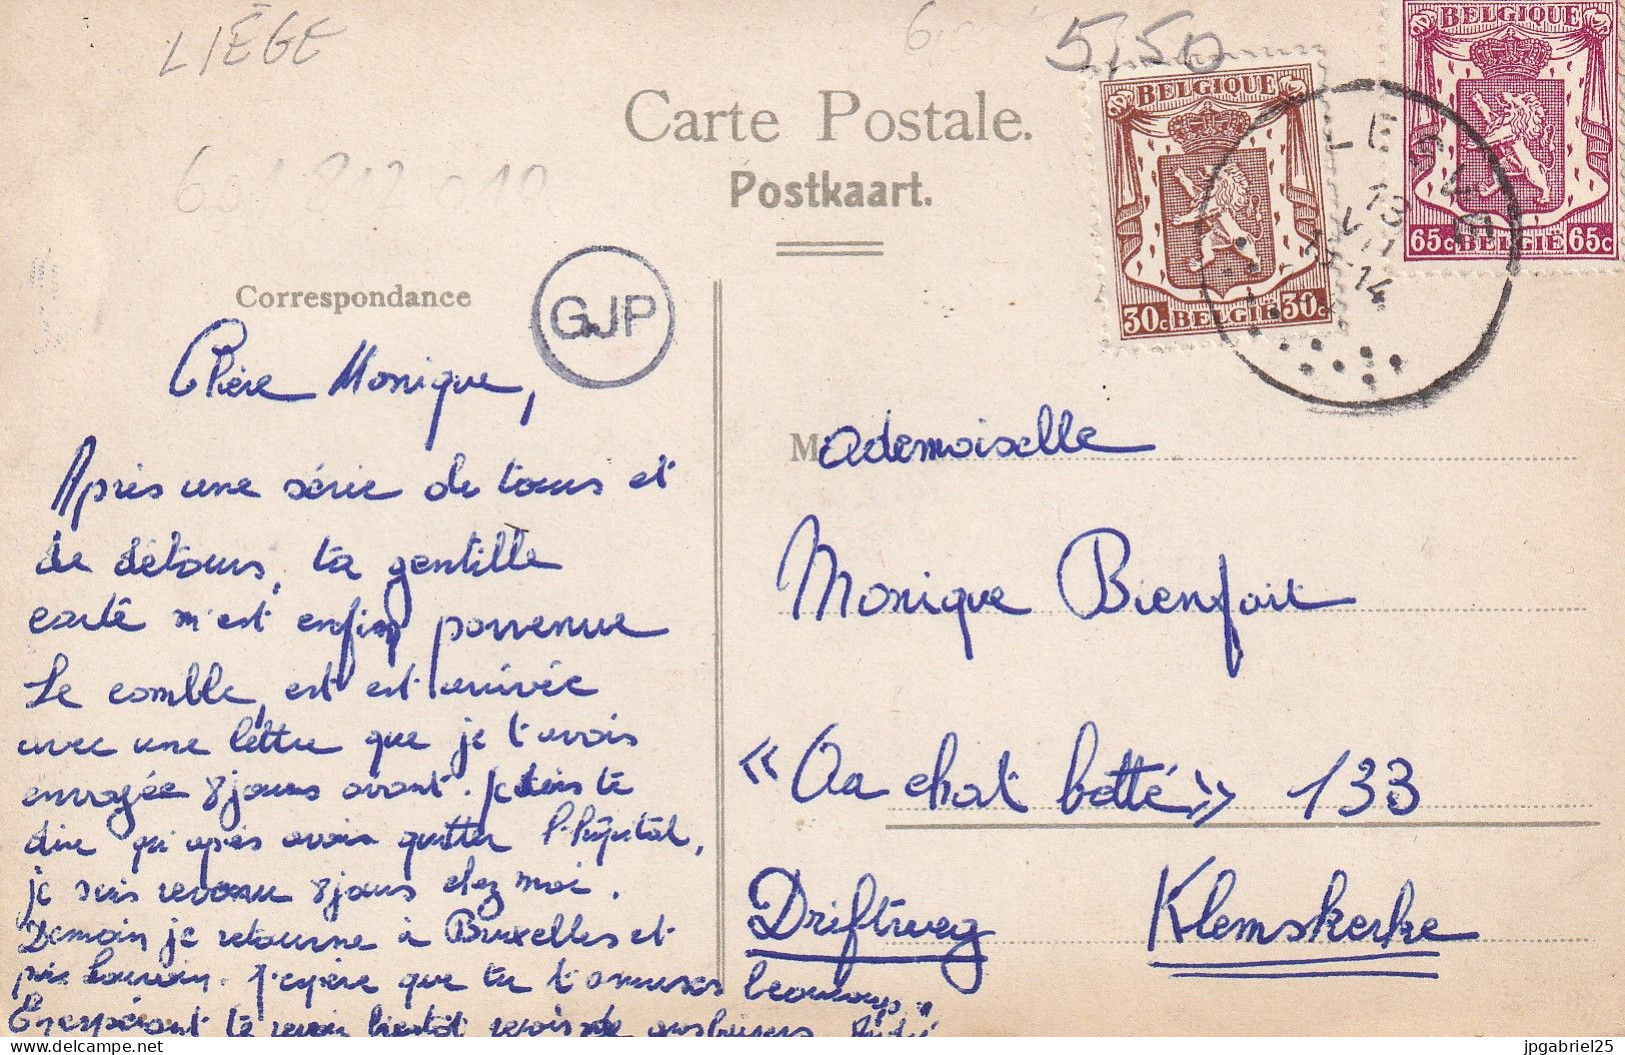 LIÈGE
5,50
Carte Postale.
Postkaart.
BELGIQUE
30c BELGIE 30c
BELGIQUE
65c BELGIE 65c
LESVE
13
VII
14
Correspondance
GJP
Chère Monique,
Après une série de tours et
de détours, ta gentille
carte m'est enfin parvenue
Le comble, est est arrivée
avec une lettre que je t'avais
envoyée 8 jours avant. Je dois te
dire qu'après avoir quitter l'hôpital,
je suis revenu 8 jours chez moi.
Demain je retourne à Bruxelles et
puis Louvain. J'espère que tu t'amuses beaucoup.
En espérant te revoir bientôt, gros baisers
Mademoiselle
Monique Bienfait
« Au chat botté » 133
Driftweg Klemskerke
jpgabriel25